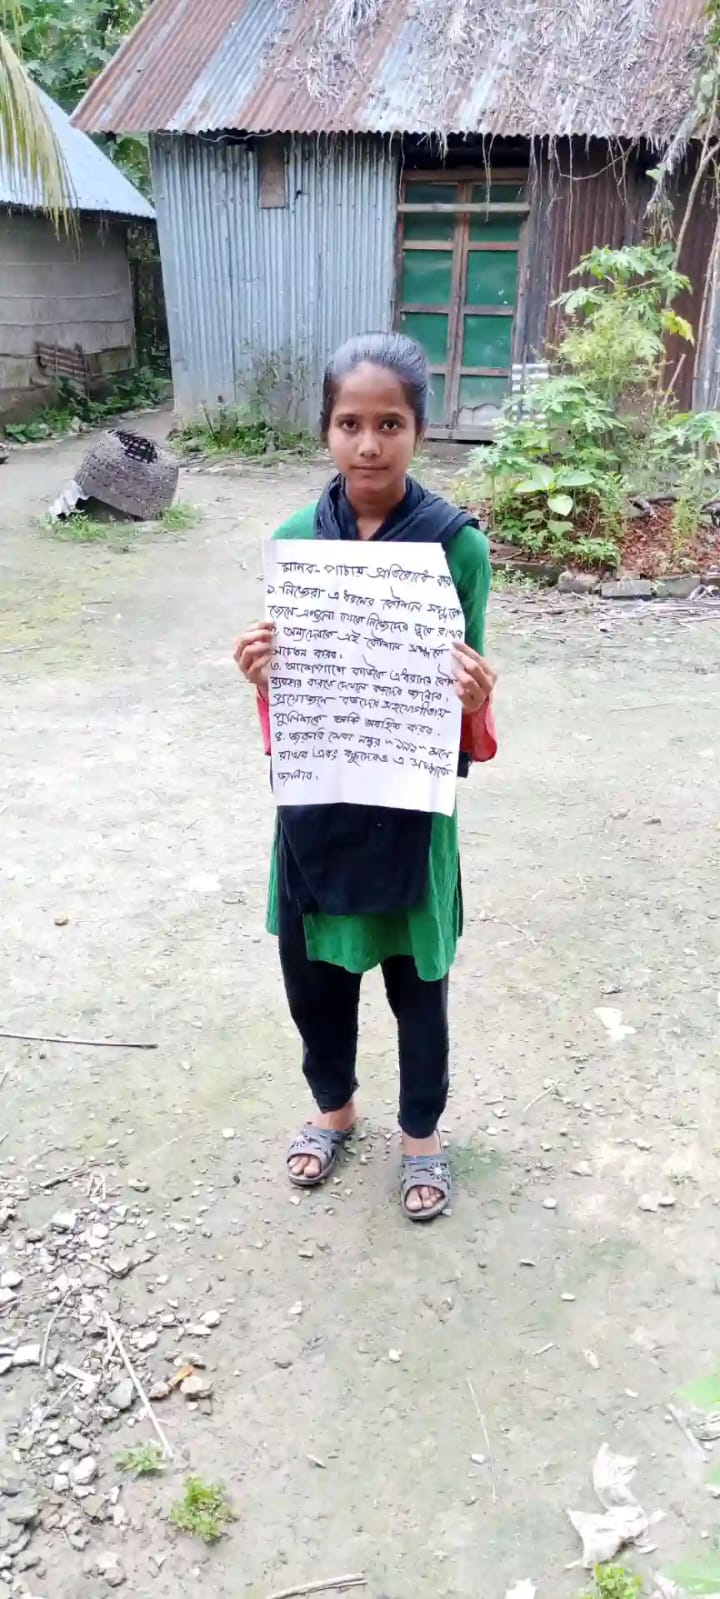 মানব-পাচার প্রতিরোধে করব
১. নিজেরা এ ধরনের কৌশল সম্পর্কে
জেনে এগুলো থেকে নিজেদের দূরে রাখব
২. অন্যদেরকে এই কৌশল সম্পর্কে
সচেতন করব।
৩. আশেপাশে কাউকে এধরনের কৌশল
ব্যবহার করতে দেখলে বড়দের জানাব।
প্রয়োজনে বড়দের সহযোগীতায়
পুলিশকে অবহিত করব।
৪. জরুরি সেবা নম্বর "৯৯৯" মনে
রাখব এবং বন্ধুদেরও এ সম্পর্কে
জানাব।